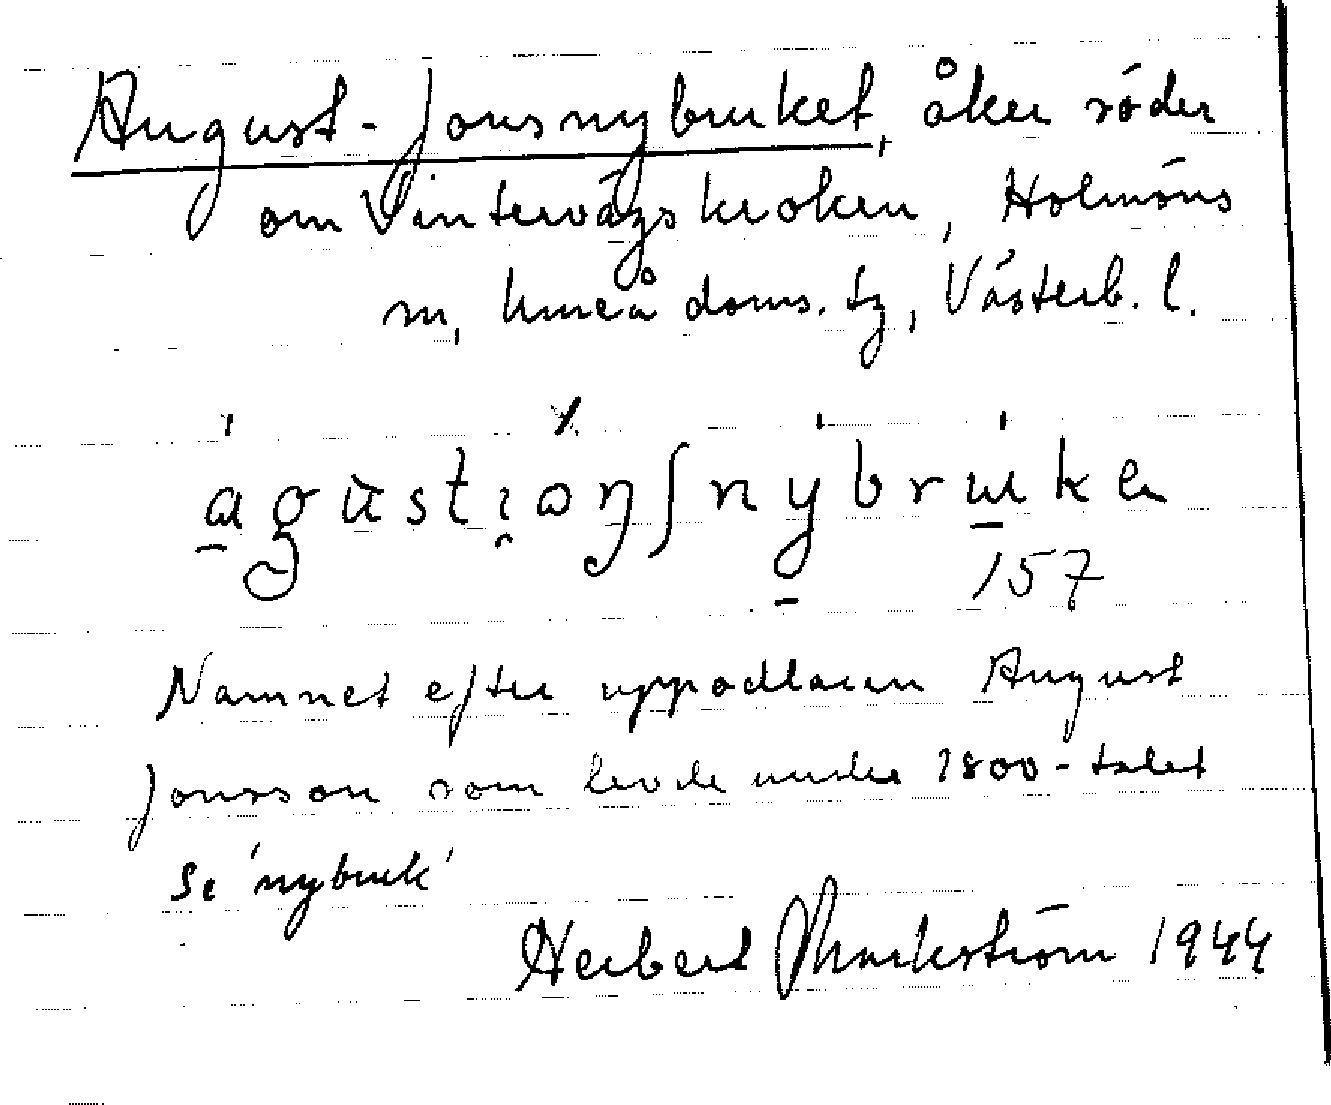 August-Jonsnybruket, åker söder
om Vintervägskroken, Holmöns
sn, Umeå doms. tg, Västerb. l.
157
Namnet efter uppodlaren August
Jonsson som levde under 1800-talet
Se 'nybruk'
Herbert Markström 1944